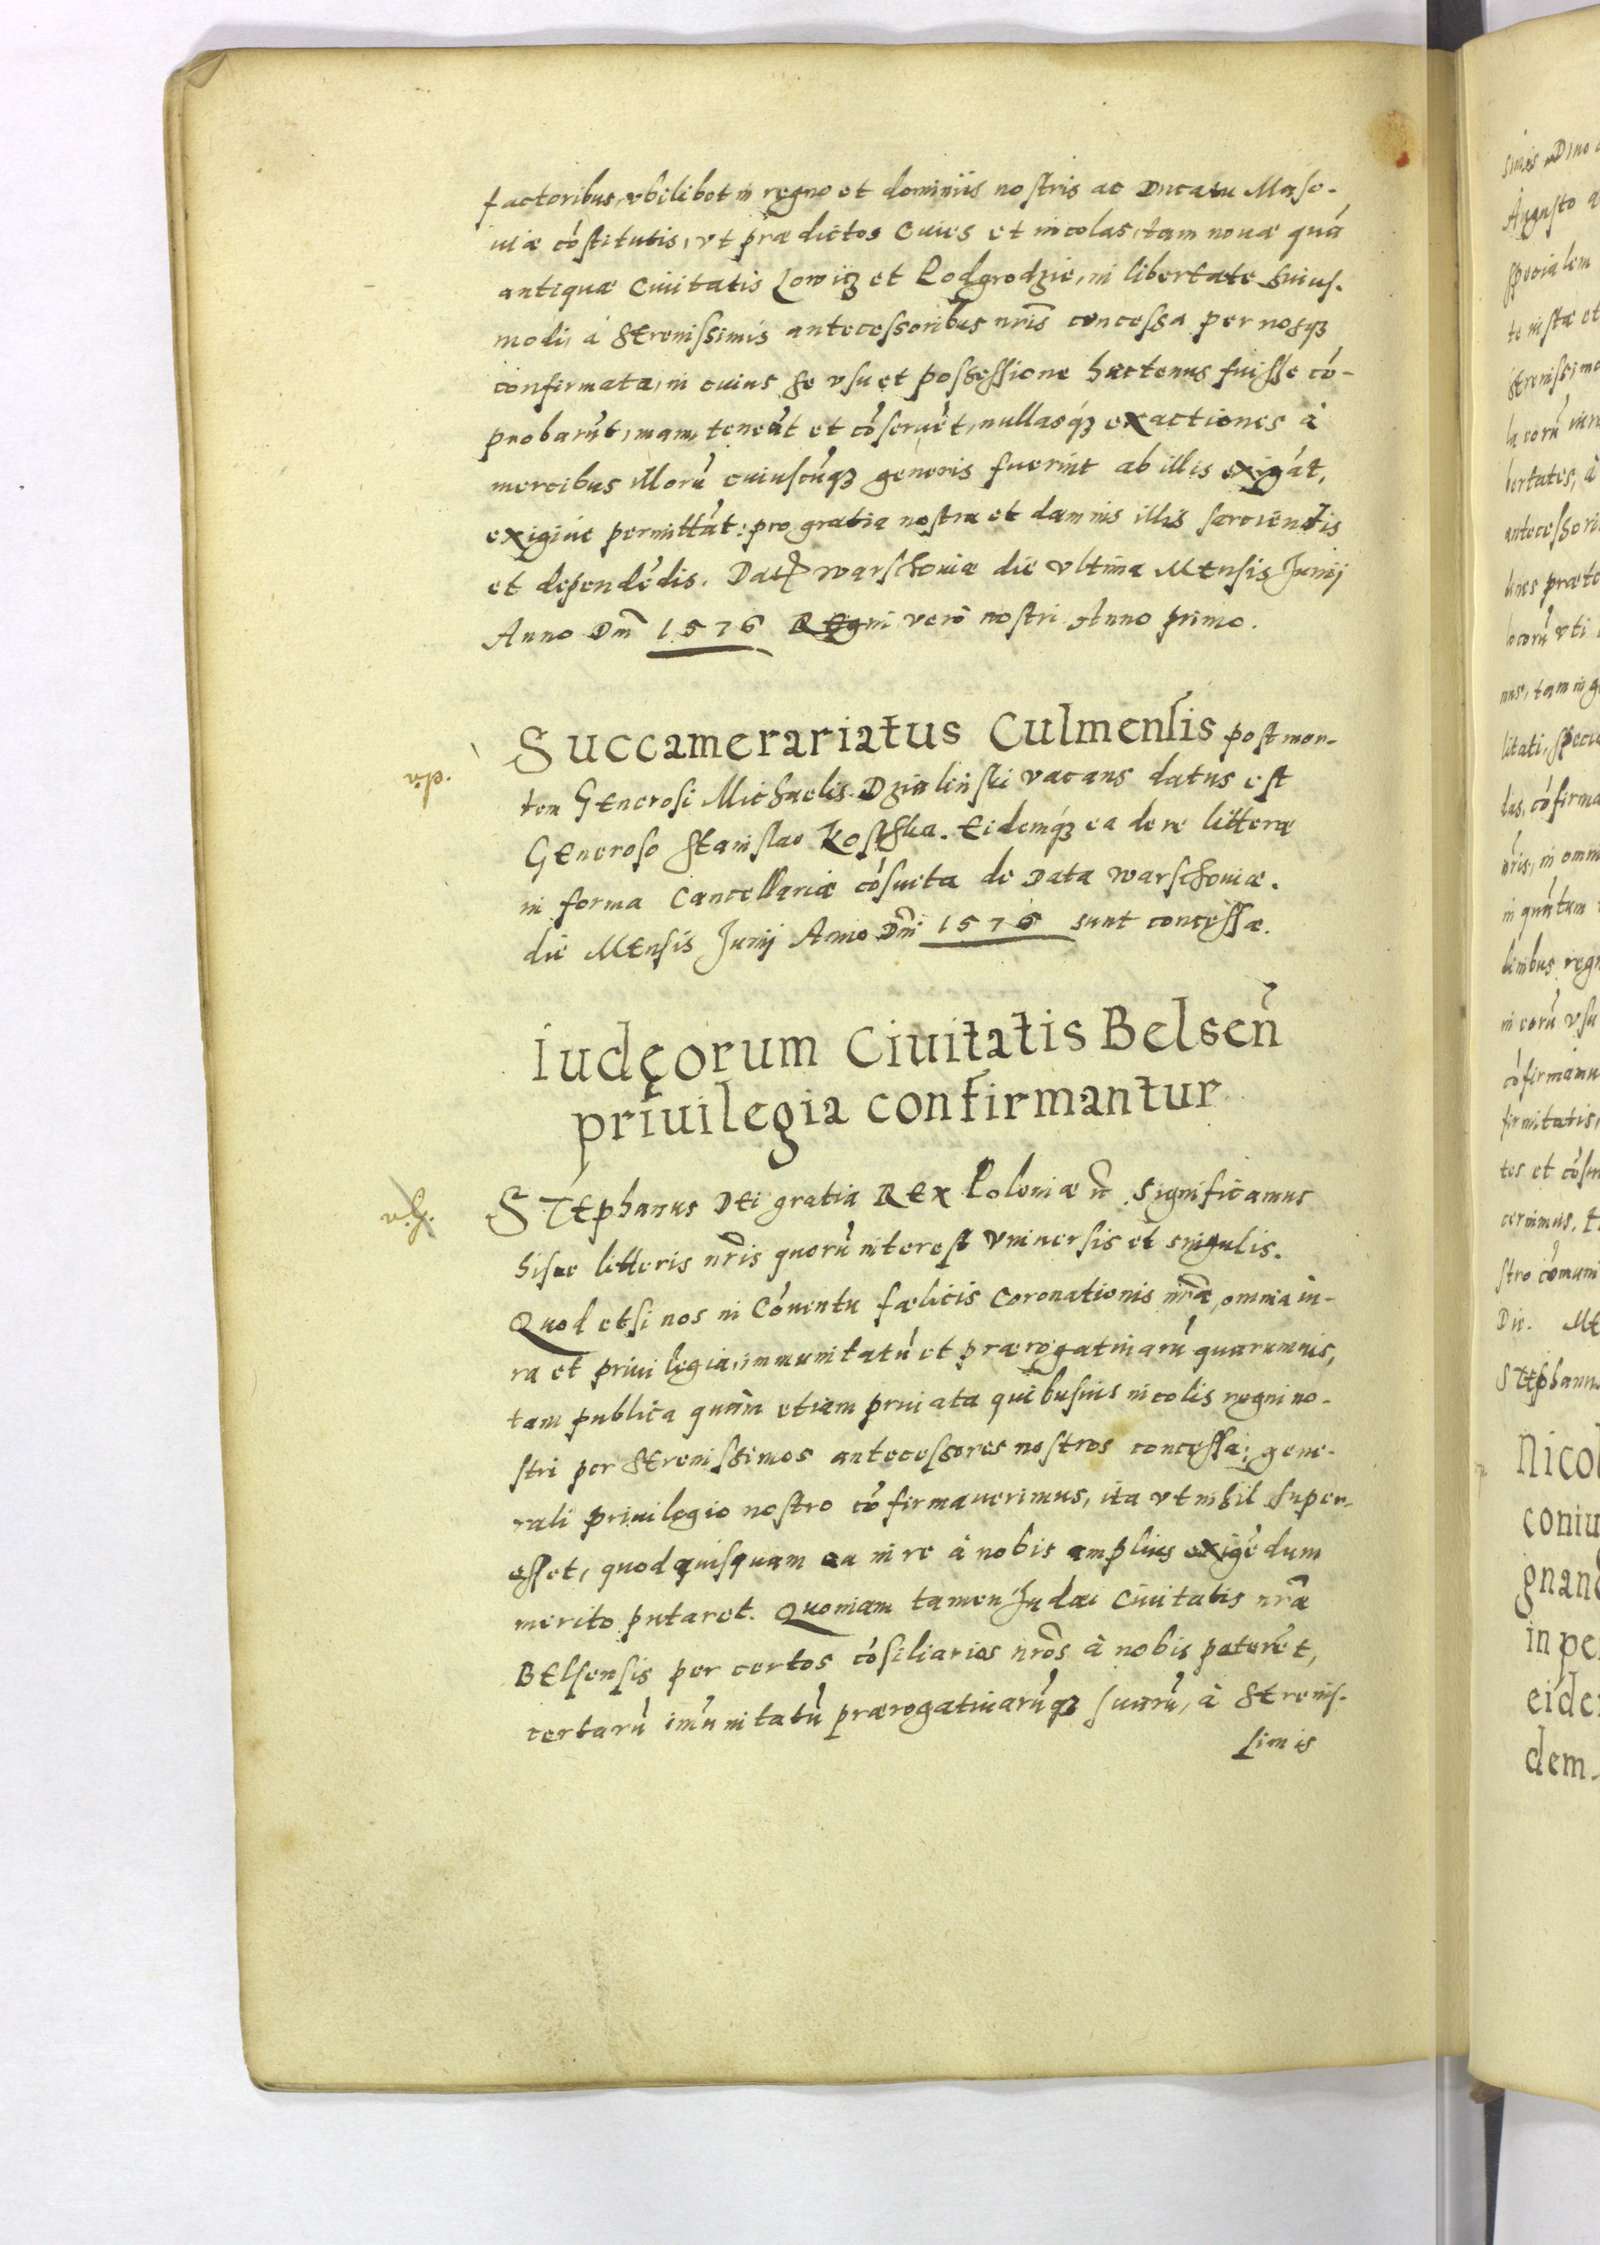 factoribus, vbilibet in regno et dominiis nostris ac Ducatu Maso-
uiæ cõstitutis, vt prædictos Ciues et incolas, tam nouæ quã
antiquæ Ciuitatis Lowiz et Podgrodzie, in libertate huius-
modi, à Serenissimis antecessoribus nrĩs concessa per nosqȝ
confirmata, in cuius se vsu et possessione hactenus fuisse cõ-
probarũt, manuteneãt et cõseruẽt, nullasqȝ exactiones à
mercibus illorũ cuiuscũqȝ generis fuerint ab illis exigãt,
exigiue permittãt: pro gratia nostra et damnis illis sarciendis
et dependẽdis. Dat Warschouiæ die vltima Mensis Junij
Anno Dnĩ 1576 Regni verò nostri Anno primo.
Succamerariatus Culmensis post mor-
tem Generosi Michaelis Dzialinski vacans datus est
Generoso Stanislao Kostka. Eidemqȝ ea de re litteræ
in forma Cancellariæ cõsueta de Data Warschouiæ.
die Mensis Junij Anno Dnĩ 1576 sunt concessæ.
Iudęorum Ciuitatis Belseñ
priuilegia confirmantur
Stephanus Dei gratia Rex Poloniæ ñ significamus
hisce litteris nrĩs quorũ interest vniuersis et singulis.
Quod etsi nos in Cõuentu fælicis Coronationis nrãe, omnia iu-
ra et priuilegia, immunitatũ et prærogatiuarũ quarumuis,
tam publica quàm etiam priuata quibusuis incolis regni no-
stri per Serenissimos antecessores nostros concessa; gene-
rali priuilegio nostro cõfirmauerimus, ita vt nihil super-
esset, quod quisquam ea in re à nobis amplius exigẽdum
merito putaret. Quoniam tamen Judæi Ciuitatis nrãe
Belsensis per certos cõsiliarios nrõs à nobis peterẽt,
certarũ imũnitatũ prærogatiuarũqȝ suarũ, à Serenis-
simis